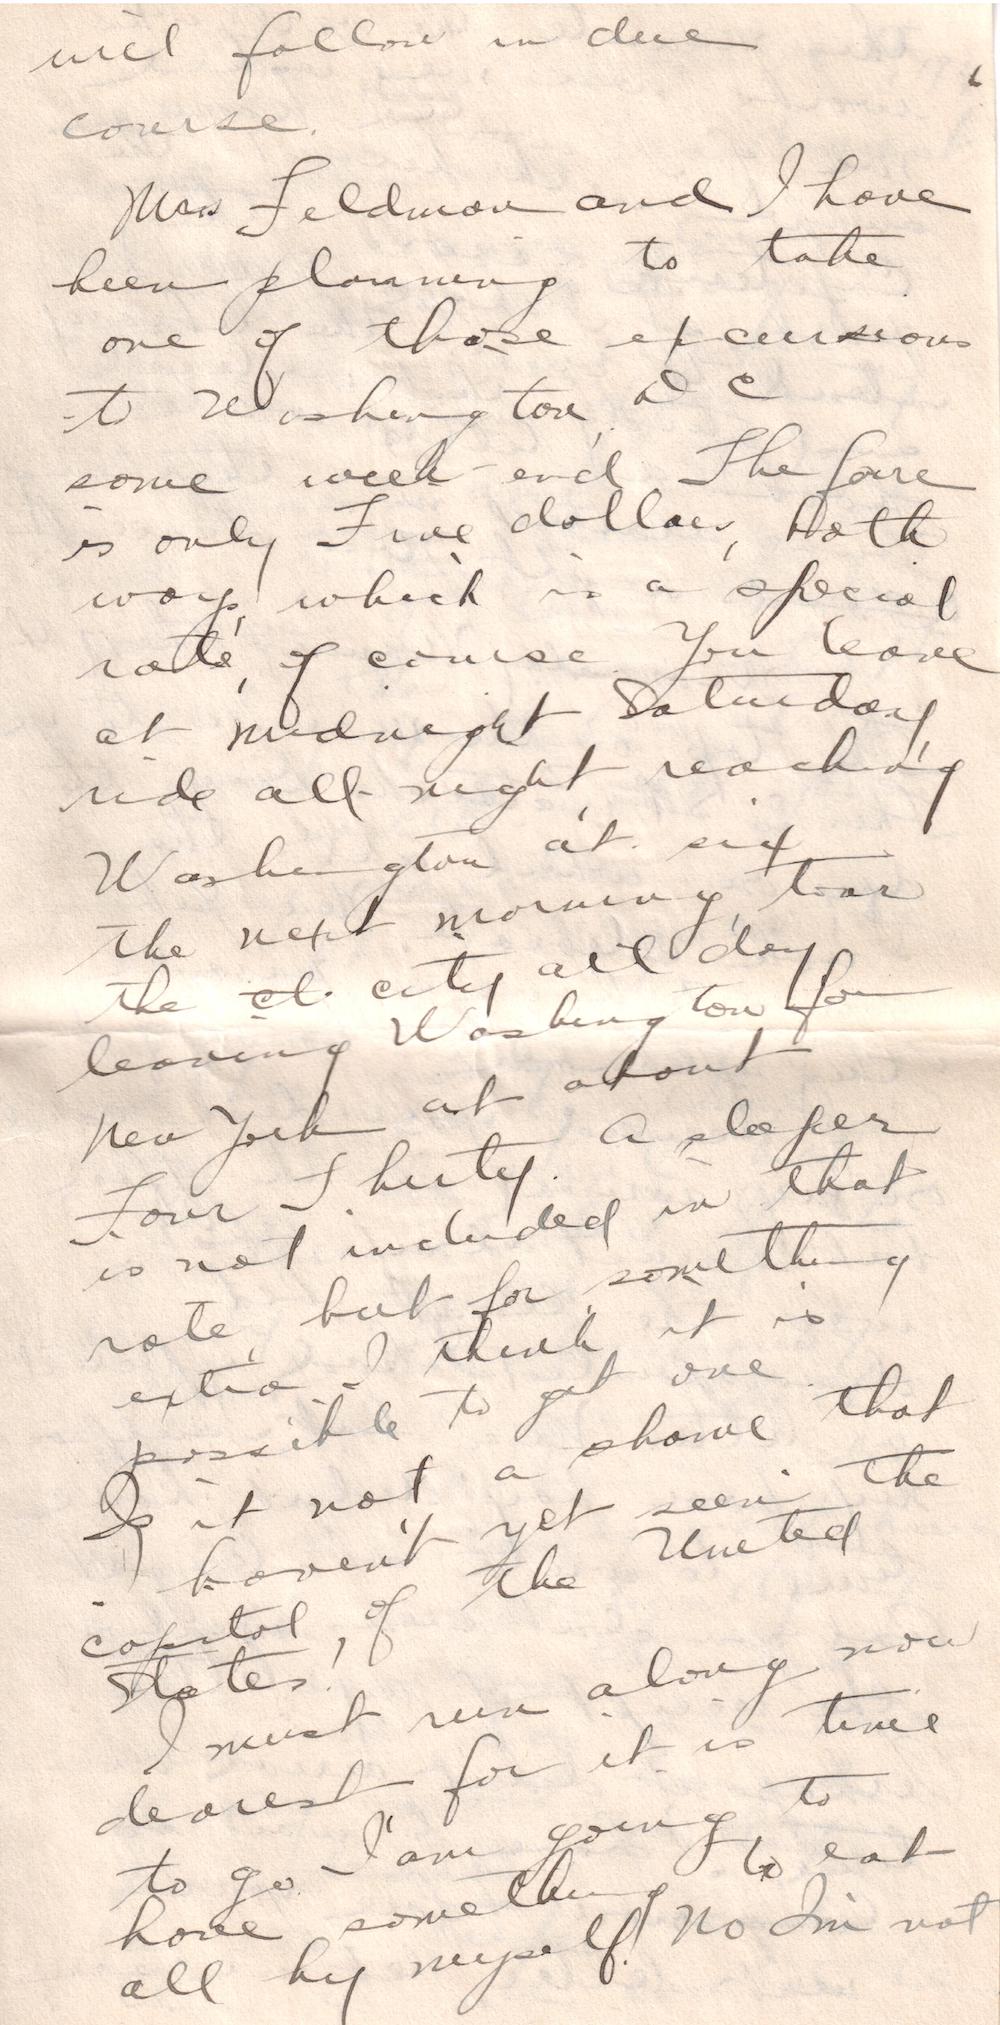 will follow in due
course.
Mrs Feldman and I have
been planning to take
one of those excursions
to Washington, D C
some week-end The fare
is only Five dollars, both
ways, which is a special
rate, of course. You leave
at midnight Saturday,
ride all night reaching
Washington at six
the next morning, tour
the ct. city all day
leaving Washington for
New York at about
Four Thirty. A sleeper
is not included in that
rate, but for something
extra I think it is
possible to get one.
Is it not a shame that
I haven't yet seen the
capitol, of the United
States!
I must run along now
dearest for it is time
to go. I'am going to
have something to eat
all by myself! No I'm not